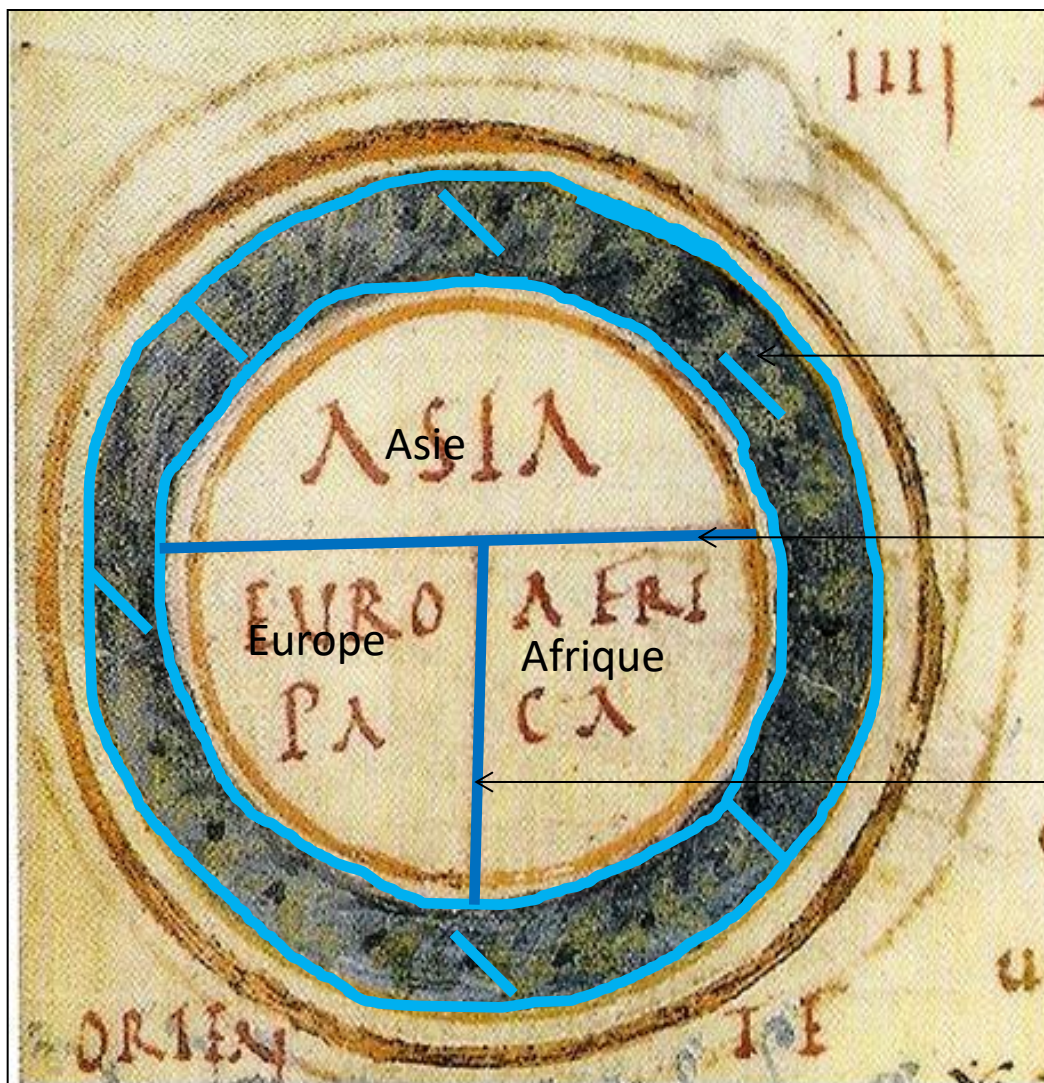 IIII
ASIA
Asie
EURO
PA
Europe
AFRI
CA
Afrique
ORIEN
TE